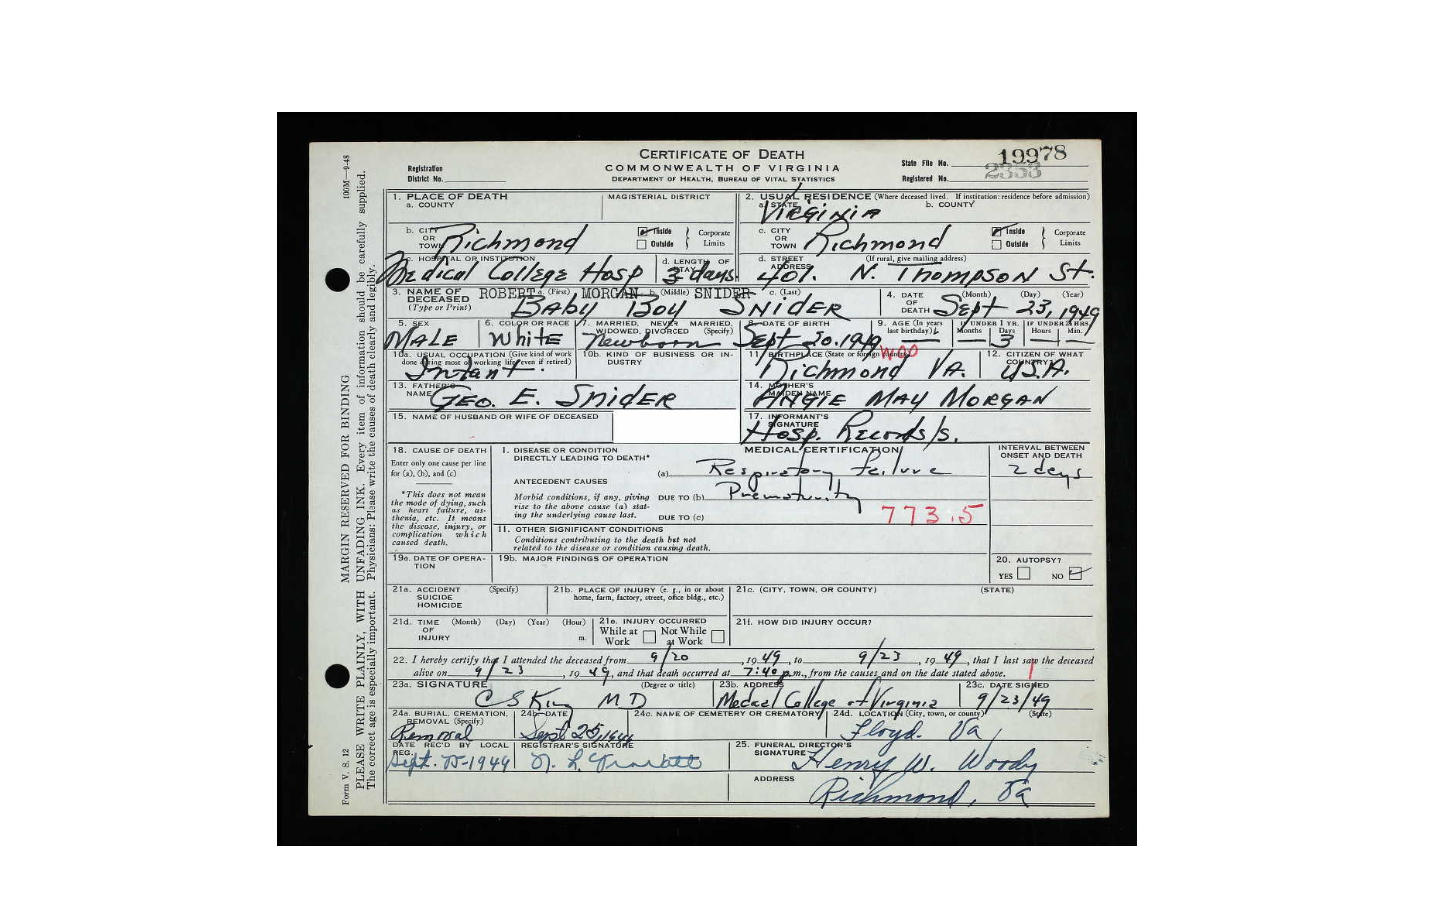 CERTIFICATE OF DEATH
COMMONWEALTH OF VIRGINIA
DEPARTMENT OF HEALTH, BUREAU OF VITAL STATISTICS
Registration District No.
State File No. 19978
Registered No. 2353
100M—9-48
MARGIN RESERVED FOR BINDING
PLEASE WRITE PLAINLY, WITH UNFADING INK. Every item of information should be carefully supplied.
The correct age is especially important. Physicians: Please write the causes of death clearly and legibly.
Form V. S. 12
1. PLACE OF DEATH
a. COUNTY
MAGISTERIAL DISTRICT
2. USUAL RESIDENCE (Where deceased lived. If institution: residence before admission)
a. STATE Virginia
b. COUNTY
b. CITY OR TOWN Richmond
Inside Outside Corporate Limits
c. CITY OR TOWN Richmond
Inside Outside Corporate Limits
c. HOSPITAL OR INSTITUTION Medical College Hosp
d. LENGTH OF STAY 3 days
d. STREET ADDRESS (If rural, give mailing address) 401. N. Thompson St.
3. NAME OF DECEASED (Type or Print)
a. (First) b. (Middle) c. (Last)
ROBERT MORGAN SNIDER
Baby Boy Snider
4. DATE OF DEATH (Month) (Day) (Year) Sept 23, 1949
5. SEX Male
6. COLOR OR RACE White
7. MARRIED, NEVER MARRIED, WIDOWED, DIVORCED (Specify) Newborn
8. DATE OF BIRTH Sept 20. 1949
9. AGE (In years last birthday)
IF UNDER 1 YR. Months Days — 3
IF UNDER 24 HRS. Hours Min. — —
10a. USUAL OCCUPATION (Give kind of work done during most of working life, even if retired) Infant.
10b. KIND OF BUSINESS OR INDUSTRY
11. BIRTHPLACE (State or foreign country) Richmond VA.
12. CITIZEN OF WHAT COUNTRY? U.S.A.
13. FATHER'S NAME Geo. E. Snider
14. MOTHER'S MAIDEN NAME Angie May Morgan
15. NAME OF HUSBAND OR WIFE OF DECEASED
17. INFORMANT'S SIGNATURE Hosp. Records/s.
18. CAUSE OF DEATH
Enter only one cause per line for (a), (b), and (c)
*This does not mean the mode of dying, such as heart failure, asthenia, etc. It means the disease, injury, or complication which caused death.
MEDICAL CERTIFICATION
INTERVAL BETWEEN ONSET AND DEATH
I. DISEASE OR CONDITION DIRECTLY LEADING TO DEATH*
(a) Respiratory failure 2 days
ANTECEDENT CAUSES
Morbid conditions, if any, giving rise to the above cause (a) stating the underlying cause last.
DUE TO (b) Prematurity
DUE TO (c)
773.5
11. OTHER SIGNIFICANT CONDITIONS
Conditions contributing to the death but not related to the disease or condition causing death.
19a. DATE OF OPERATION
19b. MAJOR FINDINGS OF OPERATION
20. AUTOPSY?
YES NO
21a. ACCIDENT SUICIDE HOMICIDE (Specify)
21b. PLACE OF INJURY (e. g., in or about home, farm, factory, street, office bldg., etc.)
21c. (CITY, TOWN, OR COUNTY) (STATE)
21d. TIME OF INJURY (Month) (Day) (Year) (Hour) m.
21e. INJURY OCCURRED While at Work Not While at Work
21f. HOW DID INJURY OCCUR?
22. I hereby certify that I attended the deceased from 9/20, 1949, to 9/23, 1949, that I last saw the deceased
alive on 9/23, 1949, and that death occurred at 7:40 p.m., from the causes and on the date stated above.
23a. SIGNATURE (Degree or title) C S King MD
23b. ADDRESS Medical College of Virginia
23c. DATE SIGNED 9/23/49
24a. BURIAL, CREMATION, REMOVAL (Specify) Removal
24b. DATE Sept 25, 1949
24c. NAME OF CEMETERY OR CREMATORY
24d. LOCATION (City, town, or county) (State) Floyd. Va,
DATE REC'D BY LOCAL REG.
REGISTRAR'S SIGNATURE
25. FUNERAL DIRECTOR'S SIGNATURE Henry W. Woody
ADDRESS Richmond, Va